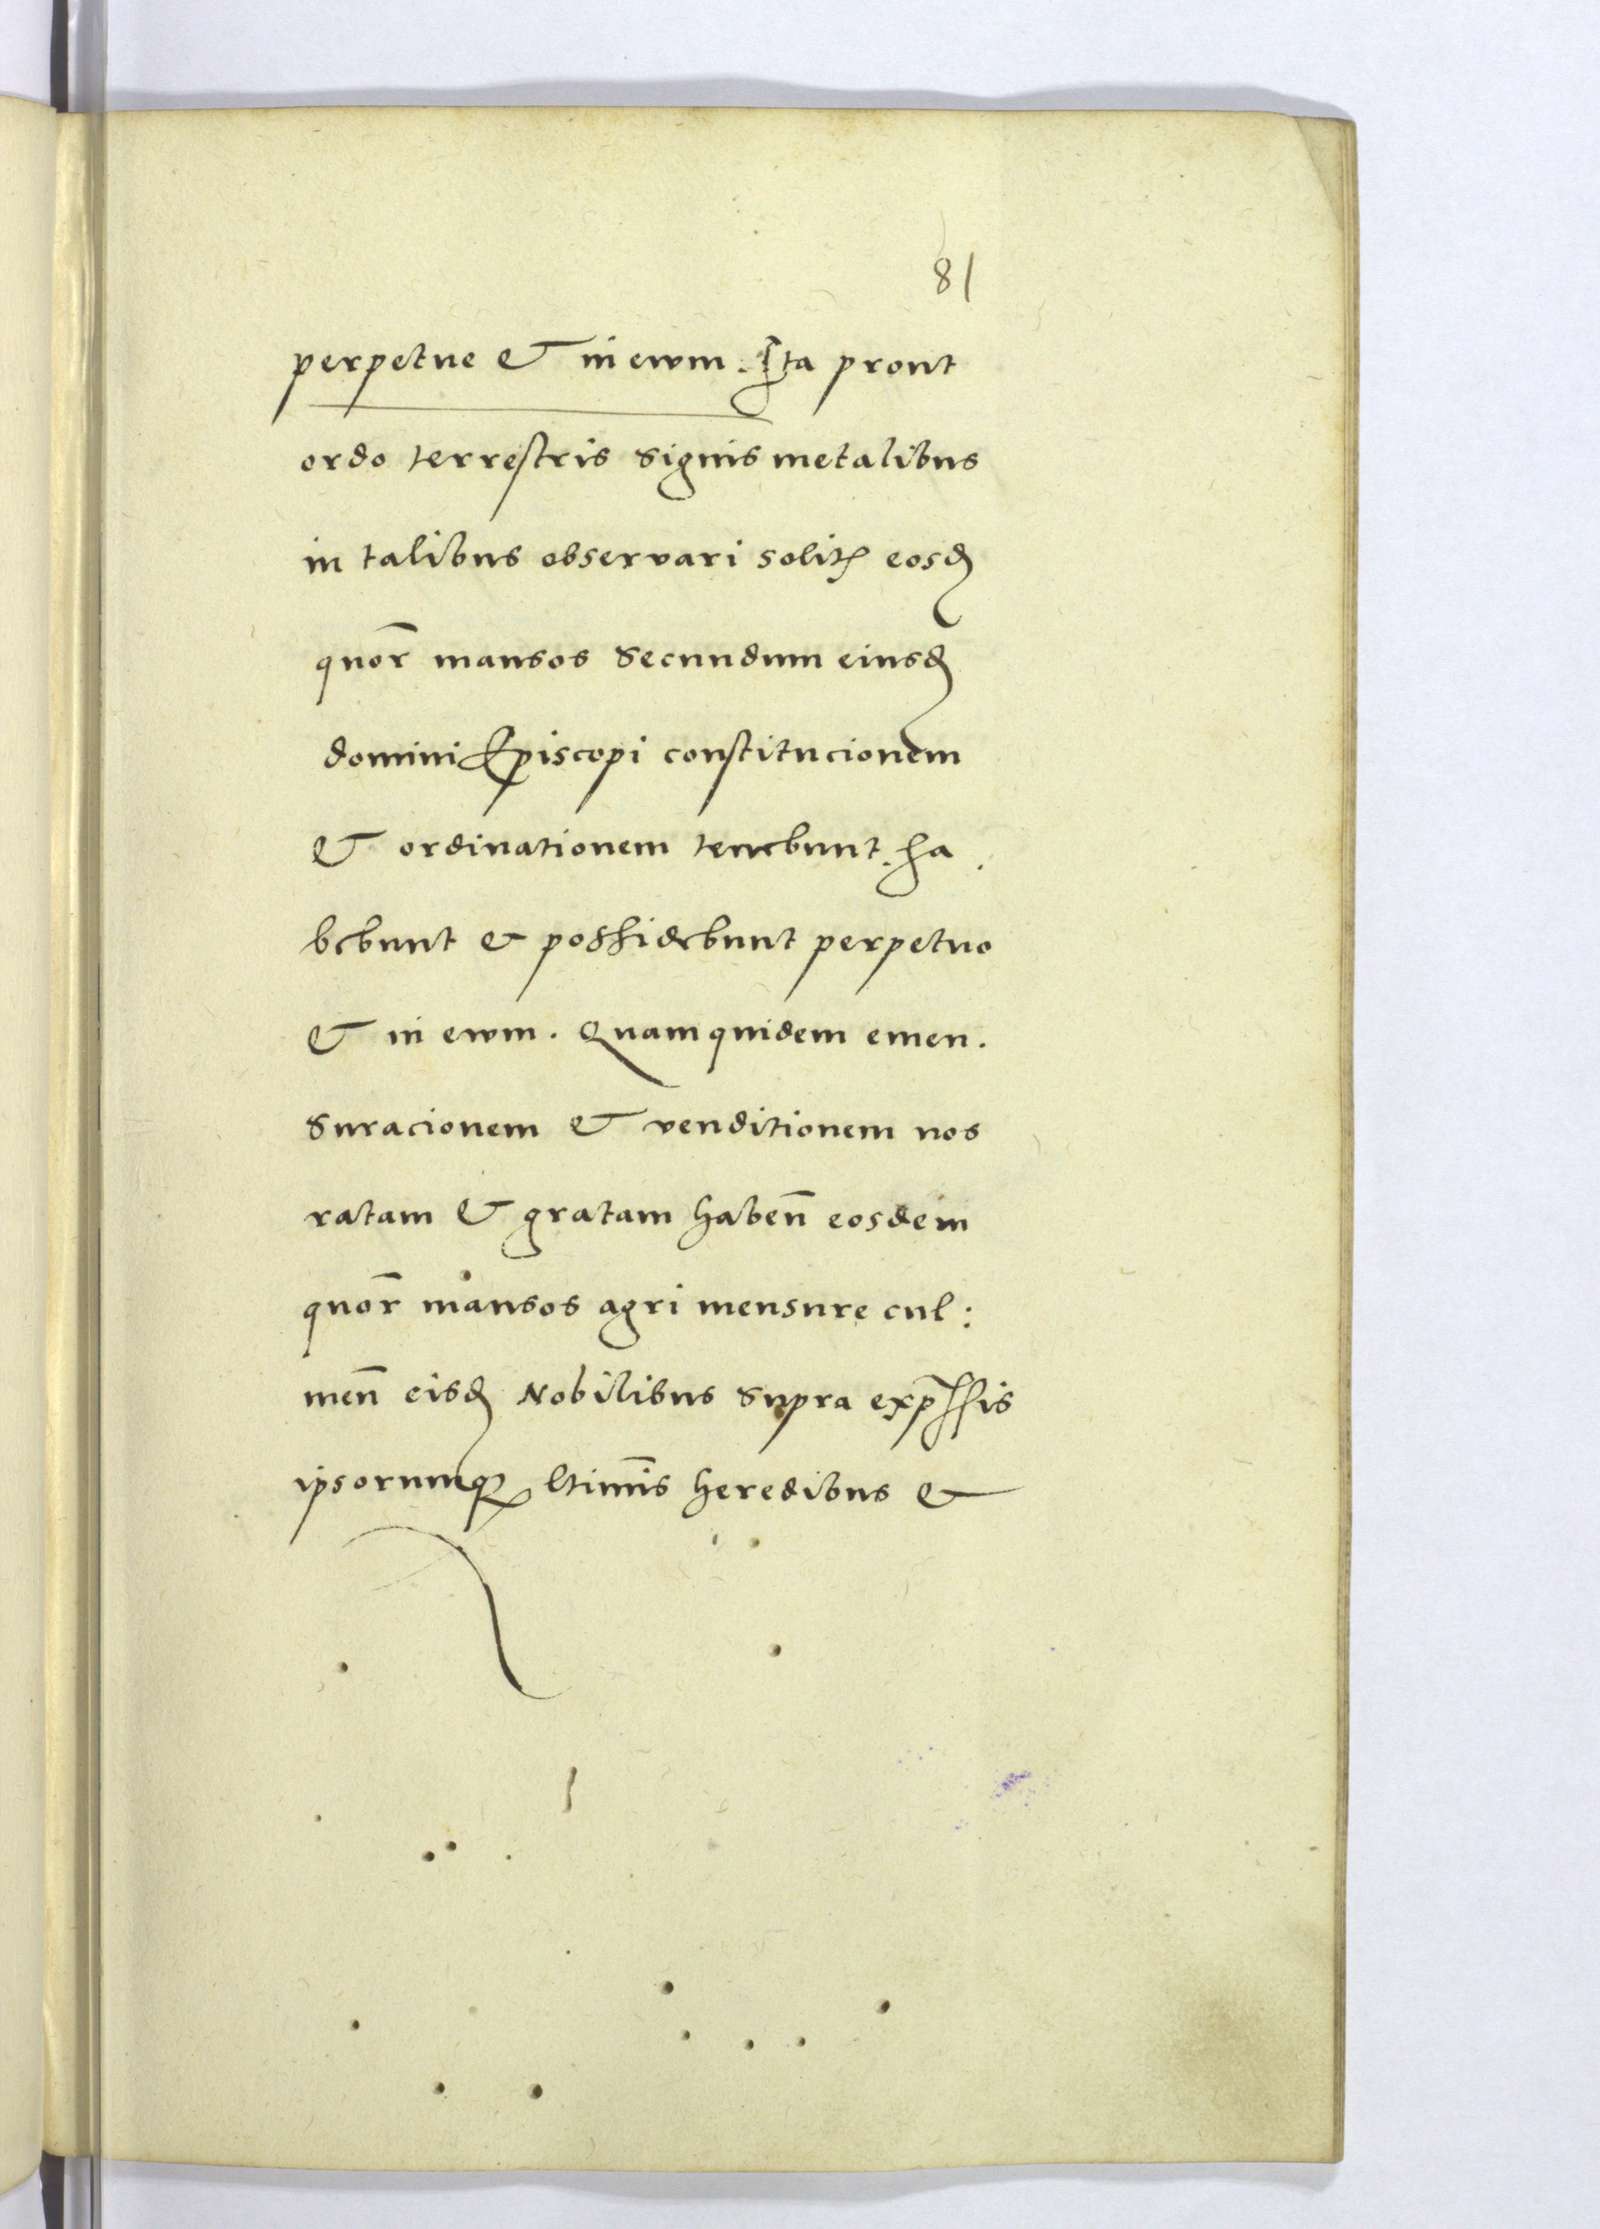 81
perpetue & in ewm. Ita prout
ordo terrestris signis metalibus
in talibus observari solit eosd
quor mansos secundum eiusd
domini Episcopi constitucionem
& ordinationem tenebunt. ha.
bebunt & possidebunt perpetuo
& in ewm. Quam quidem emen.
suracionem & venditionem nos
ratam & gratam haben̄ eosdem
quor̄ mansos agri mensure cul:
men̄ eisd Nobilibus supra exp̄ssis
ipsorumq ltimīs heredibus &